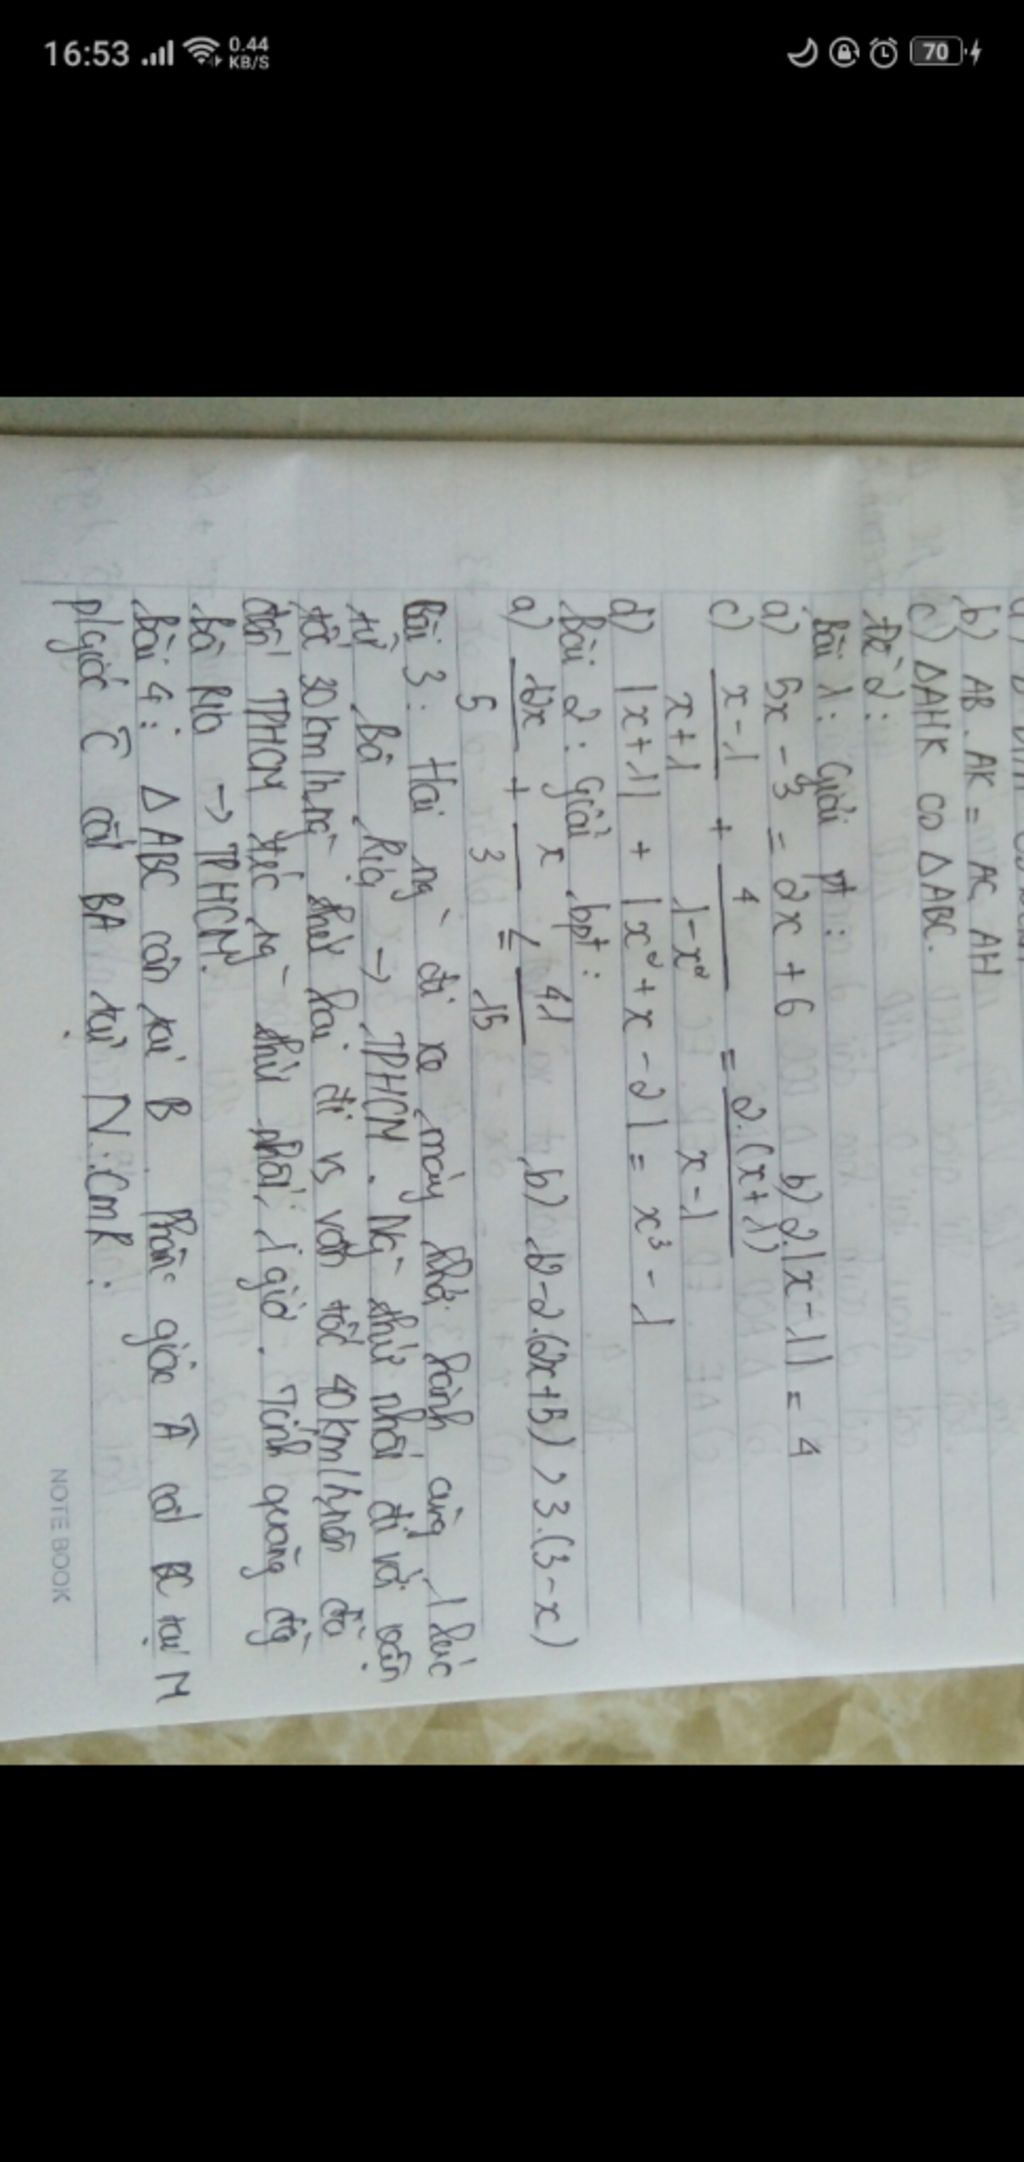 16:53 0.44 KB/S 70
b) AB. AK = AC. AH
c) ΔAHK ∽ ΔABC.
Đề 2:
Bài 1: Giải pt:
a) 5x - 3 = 2x + 6 b) 2.|x-1| = 4
c) (x-1)/(x+1) + 4/(1-x²) = 2.(x+1)/(x-1)
d) |x+1| + |x²+x-2| = x³-1
Bài 2: Giải bpt:
a) 12x/5 + x/3 ≤ 41/15 b) 12-2.(2x+5) > 3.(3-x)
Bài 3: Hai ng` đi xe máy khởi hành cùng 1 lúc
từ Bà Rịa → TPHCM. Ng` thứ nhất đi với vận
tốc 30km/h, ng` thứ hai đi vs vận tốc 40km/h, nên đã
đến TPHCM trước ng` thứ nhất 1 giờ. Tính quãng đg
Bà Rịa → TPHCM.
Bài 4: ΔABC cân tại B. Phân giác Â cắt BC tại M
p/giác Ĉ cắt BA tại N. CmR:
NOTE BOOK